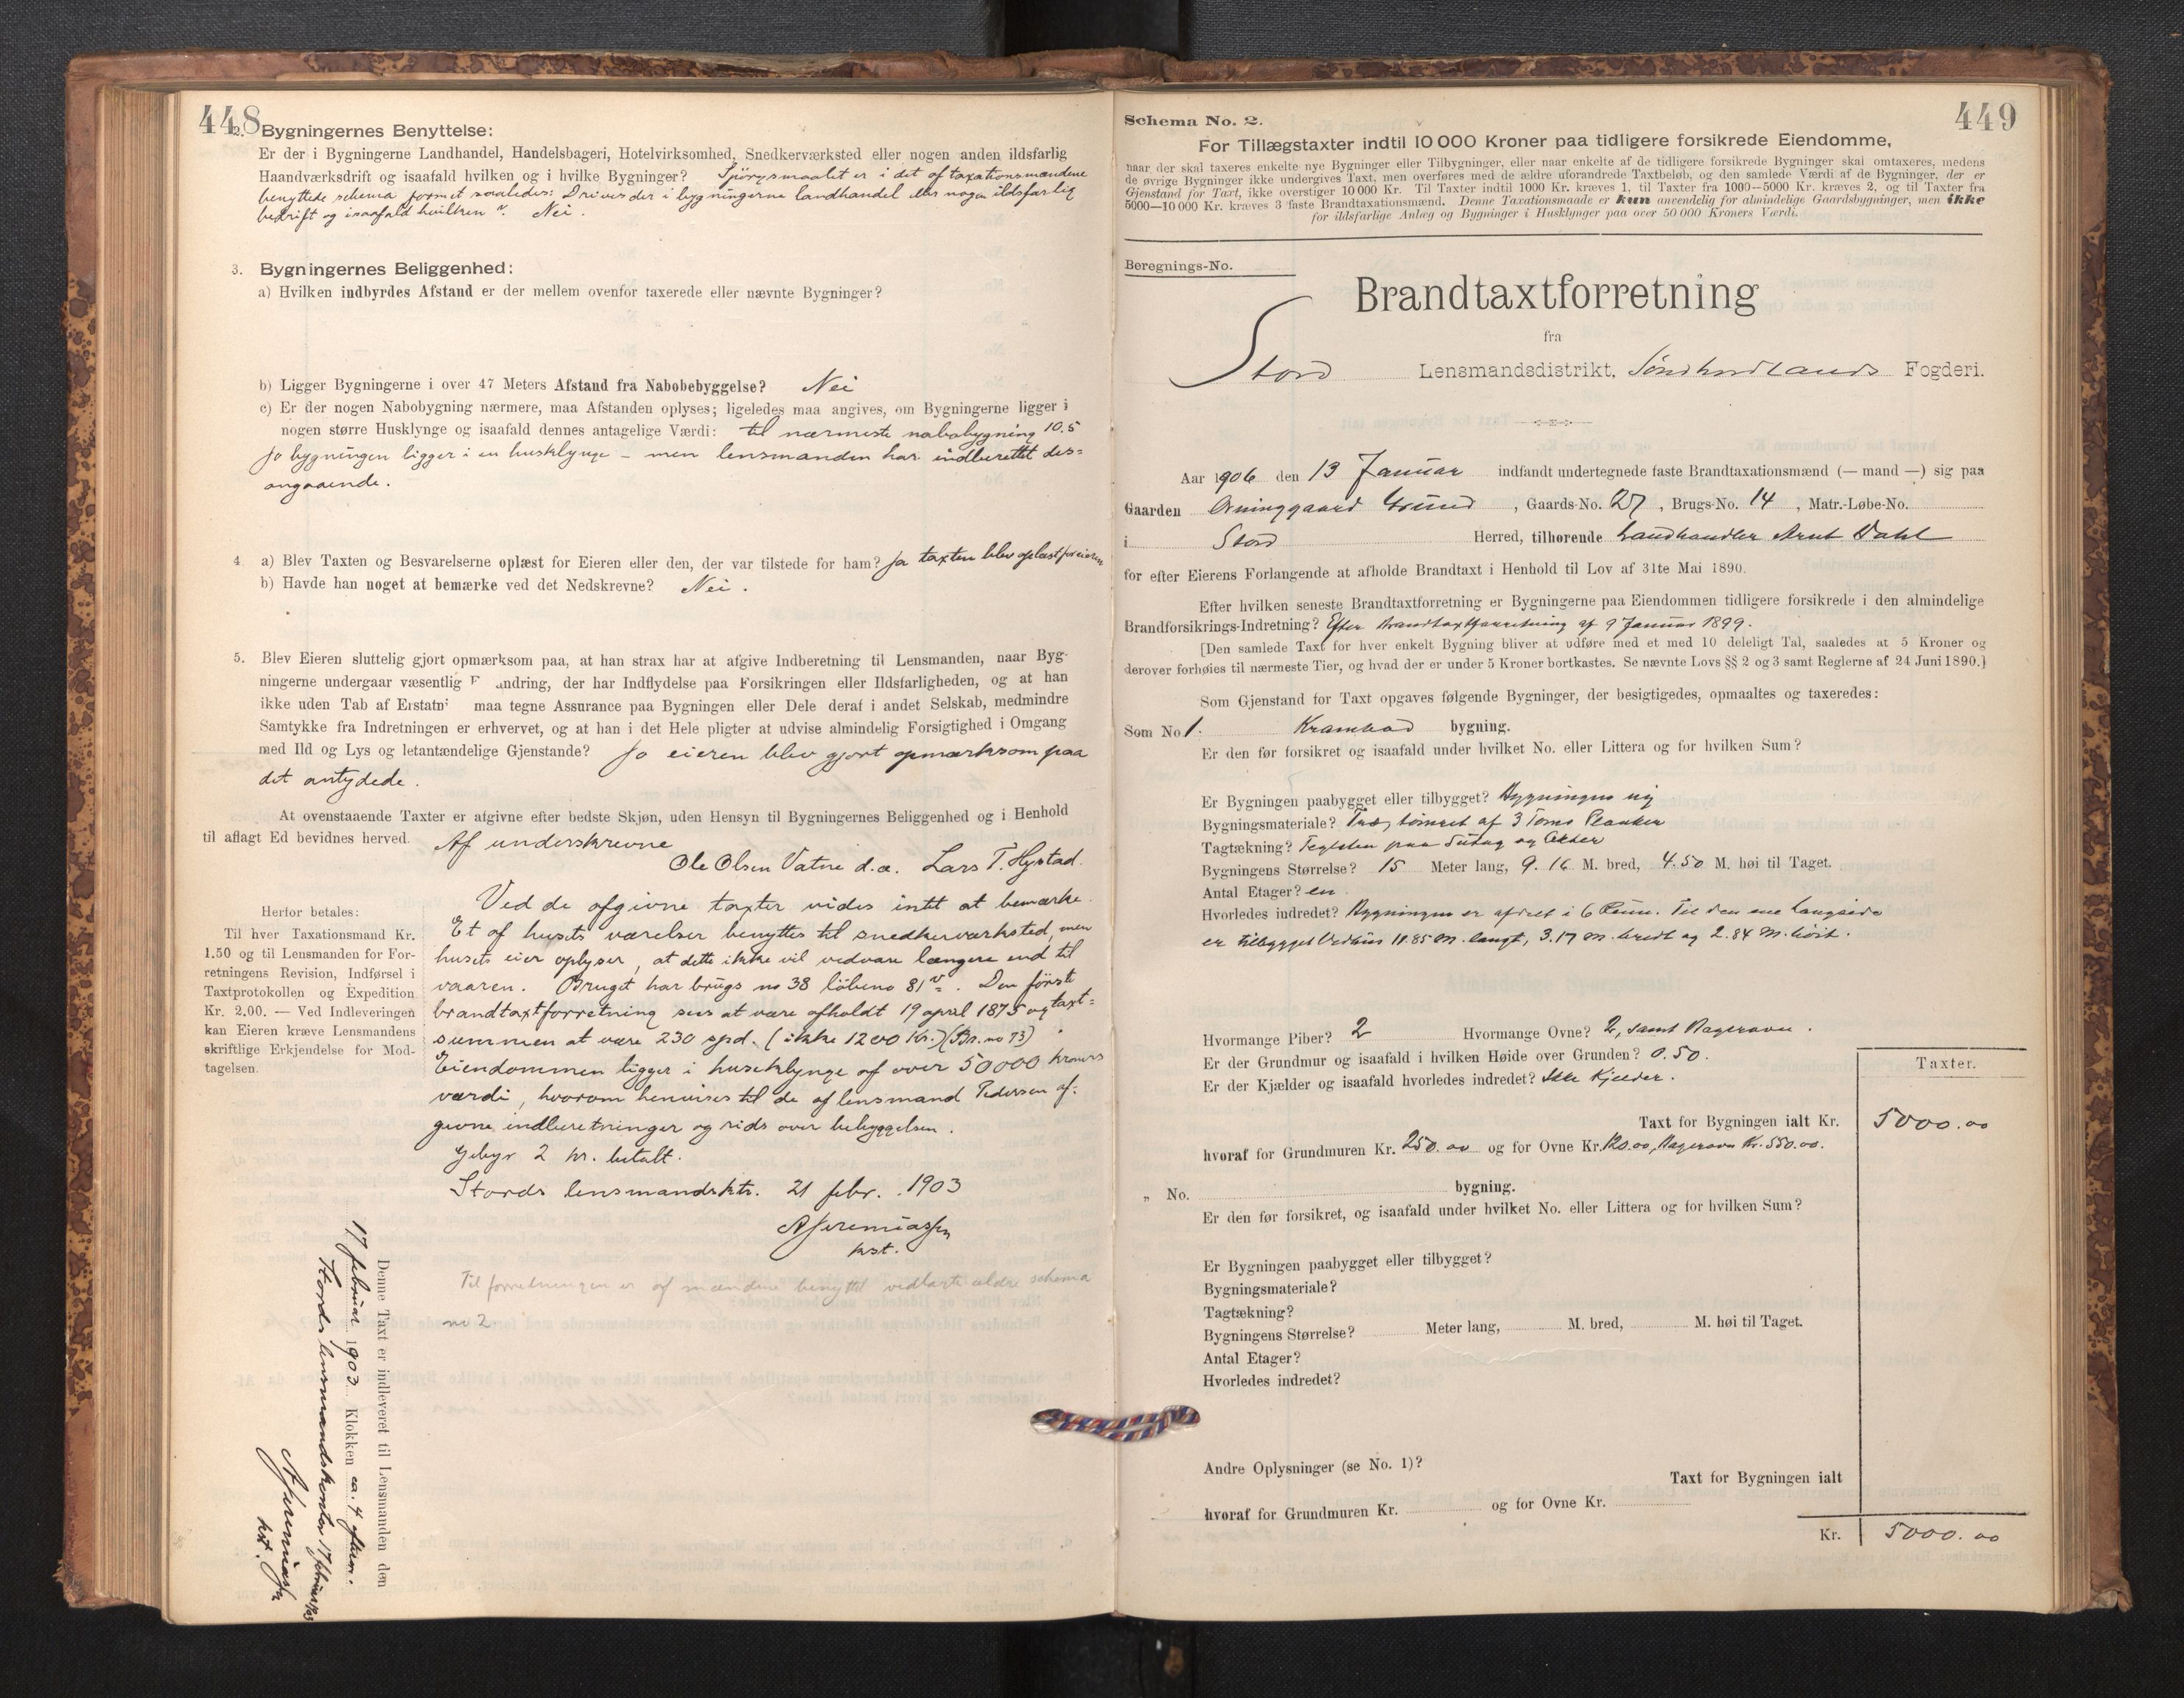 448
2. Bygningernes Benyttelse:
Er der i Bygningerne Landhandel, Handelsbageri, Hotelvirksomhed, Snedkerværksted eller nogen anden ildsfarlig
Haandværksdrift og isaafald hvilken og i hvilke Bygninger? Spörgsmaalet er i det af taxationsmændene
benyttede schema formet saaledes: Drives der i bygningerne landhandel eller nogen ildsfarlig
bedrift og isaafald hvilken? Nei.
3. Bygningernes Beliggenhed:
a) Hvilken indbyrdes Afstand er der mellem ovenfor taxerede eller nævnte Bygninger?
b) Ligger Bygningerne i over 47 Meters Afstand fra Nabobebyggelse? Nei
c) Er der nogen Nabobygning nærmere, maa Afstanden oplyses; ligeledes maa angives, om Bygningerne ligger i
nogen større Husklynge og isaafald dennes antagelige Værdi: til nærmeste nabobygning 10.5
Ja bygningen ligger i en husklynge – men lensmanden har indberettet des=
angaaende.
4 a) Blev Taxten og Besvarelserne oplæst for Eieren eller den, der var tilstede for ham? Ja taxten blev oplæst for eieren
b) Havde han noget at bemærke ved det Nedskrevne? Nei.
5. Blev Eieren sluttelig gjort opmærksom paa, at han strax har at afgive Indberetning til Lensmanden, naar Byg-
ningerne undergaar væsentlig F andring, der har Indflydelse paa Forsikringen eller Ildsfarligheden, og at han
ikke uden Tab af Erstatn maa tegne Assurance paa Bygningen eller Dele deraf i andet Selskab, medmindre
Samtykke fra Indretningen er erhvervet, og at han i det Hele pligter at udvise almindelig Forsigtighed i Omgang
med Ild og Lys og letantændelige Gjenstande? Ja eieren blev gjort opmærksom paa
det antydede.
At ovenstaaende Taxter er afgivne efter bedste Skjøn, uden Hensyn til Bygningernes Beliggenhed og i Henhold
til aflagt Ed bevidnes herved. Af underskrevne
Ole Olsen Vatne d.æ. Lars T. Hystad.
Ved de afgivne taxter vides intet at bemærke.
Et af husets værelser benyttes til snedkerværksted, men
husets eier oplyser, at dette ikke vil vedvare længere end til
vaaren. Bruget har brugs no 38 löbeno 81. Den förste
brandtaxtforretning sees at være afholdt 19 april 1875 og taxt=
summen at være 230 spd. (ikke 1200 Kr.) (Br. no 73)
Eiendommen ligger i husklynge af over 50000 kroners
værdi, hvorom henvises til de af lensmand Pedersen af-
givne indberetninger og rids over bebyggelsen.
Gebyr 2 kr. betalt.
Stords lensmandsktr. 21 febr. 1903
A Jeremiassen
kst.
Herfor betales:
Til hver Taxationsmand Kr.
1.50 og til Lensmanden for For-
retningens Revision, Indførsel i
Taxtprotokollen og Expedition
Kr. 2.00. — Ved Indleveringen
kan Eieren kræve Lensmandens
skriftlige Erkjendelse for Mod-
tagelsen.
Til forretningen er af mændene benyttet vedlagte ældre schema
no 2
Denne Taxt er indleveret til Lensmanden den
17 februar 1903 Klokken ca. 4 efterm.
Stords lensmandskontor 17 februar 1903
A Jeremiassen
kst.
449
Schema No. 2.
For Tillægstaxter indtil 10 000 Kroner paa tidligere forsikrede Eiendomme,
naar der skal taxeres enkelte nye Bygninger eller Tilbygninger, eller naar enkelte af de tidligere forsikrede Bygninger skal omtaxeres, medens
de øvrige Bygninger ikke undergives Taxt, men overføres med de ældre uforandrede Taxtbeløb, og den samlede Værdi af de Bygninger, der er
Gjenstand for Taxt, ikke overstiger 10 000 Kr. Til Taxter indtil 1000 Kr. kræves 1, til Taxter fra 1000—5000 Kr. kræves 2, og til Taxter fra
5000—10 000 Kr. kræves 3 faste Brandtaxationsmænd. Denne Taxationsmaade er kun anvendelig for almindelige Gaardsbygninger, men ikke
for ildsfarlige Anlæg og Bygninger i Husklynger paa over 50 000 Kroners Værdi.
Beregnings-No.
Brandtaxtforretning
fra
Stord Lensmandsdistrikt, Söndhordlands Fogderi.
Aar 1906 den 13 Januar indfandt undertegnede faste Brandtaxationsmænd (— mand —) sig paa
Gaarden Orninggaard Grund, Gaards-No. 27, Brugs-No. 14, Matr.-Løbe-No.
i Stord Herred, tilhørende Landhandler Arnt Dahl
for efter Eierens Forlangende at afholde Brandtaxt i Henhold til Lov af 31te Mai 1890.
Efter hvilken seneste Brandtaxtforretning er Bygningerne paa Eiendommen tidligere forsikrede i den almindelige
Brandforsikrings-Indretning? Efter Brandtaxtforretning af 9 Januar 1899.
[Den samlede Taxt for hver enkelt Bygning bliver at udføre med et med 10 deleligt Tal, saaledes at 5 Kroner og
derover forhøies til nærmeste Tier, og hvad der er under 5 Kroner bortkastes. Se nævnte Lovs §§ 2 og 3 samt Reglerne af 24 Juni 1890.]
Som Gjenstand for Taxt opgaves følgende Bygninger, der besigtigedes, opmaaltes og taxeredes:
Som No 1. Krambod bygning.
Er den før forsikret og isaafald under hvilket No. eller Littera og for hvilken Sum?
Er Bygningen paabygget eller tilbygget? Bygningen ny
Bygningsmateriale? Træ, tömret af 3 Toms Planker
Tagtækning? Teglsten paa Sutag og Lekter
Bygningens Størrelse? 15 Meter lang, 9.16 M. bred, 4.50 M. høi til Taget.
Antal Etager? en
Hvorledes indredet? Bygningen er afdelt i 6 Rum. Til den ene Langside
er tilbygget Vedhus 11.85 M. langt, 3.17 M. bredt og 2.84 M. höit.
Hvormange Piber? 2 Hvormange Ovne? 2, samt Bagerovn.
Er der Grundmur og isaafald i hvilken Høide over Grunden? 0.50.
Er der Kjælder og isaafald hvorledes indredet? Ikke Kjelder.
Taxter.
Taxt for Bygningen ialt Kr. 5000.00
hvoraf for Grundmuren Kr. 250.00 og for Ovne Kr. 120.00, Bagerovn Kr. 550.00.
„ No. bygning.
Er den før forsikret, og isaafald under hvilket No. eller Littera og for hvilken Sum?
Er Bygningen paabygget eller tilbygget?
Bygningsmateriale?
Tagtækning?
Bygningens Størrelse? Meter lang, M. bred, M. høi til Taget.
Antal Etager?
Hvorledes indredet?
Andre Oplysninger (se No. 1)?
Taxt for Bygningen ialt
hvoraf for Grundmuren Kr. og for Ovne Kr.
Kr. 5000.00